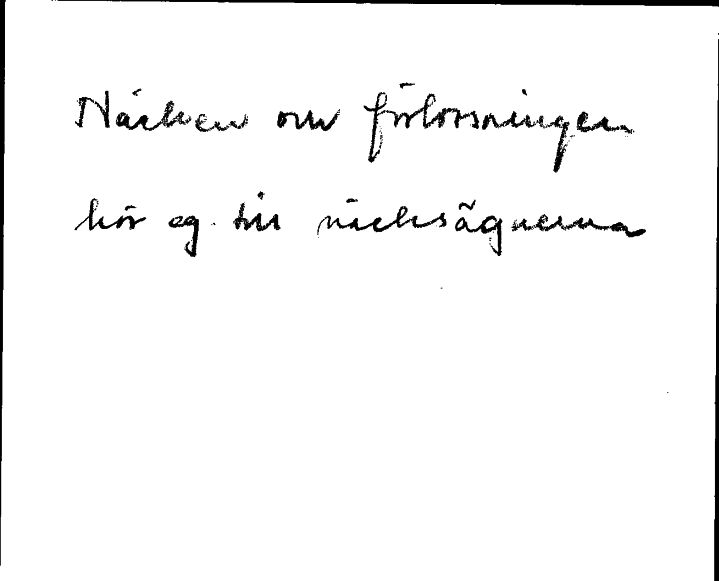 Näcken om förlossningen
hör eg. till näcksägnerna